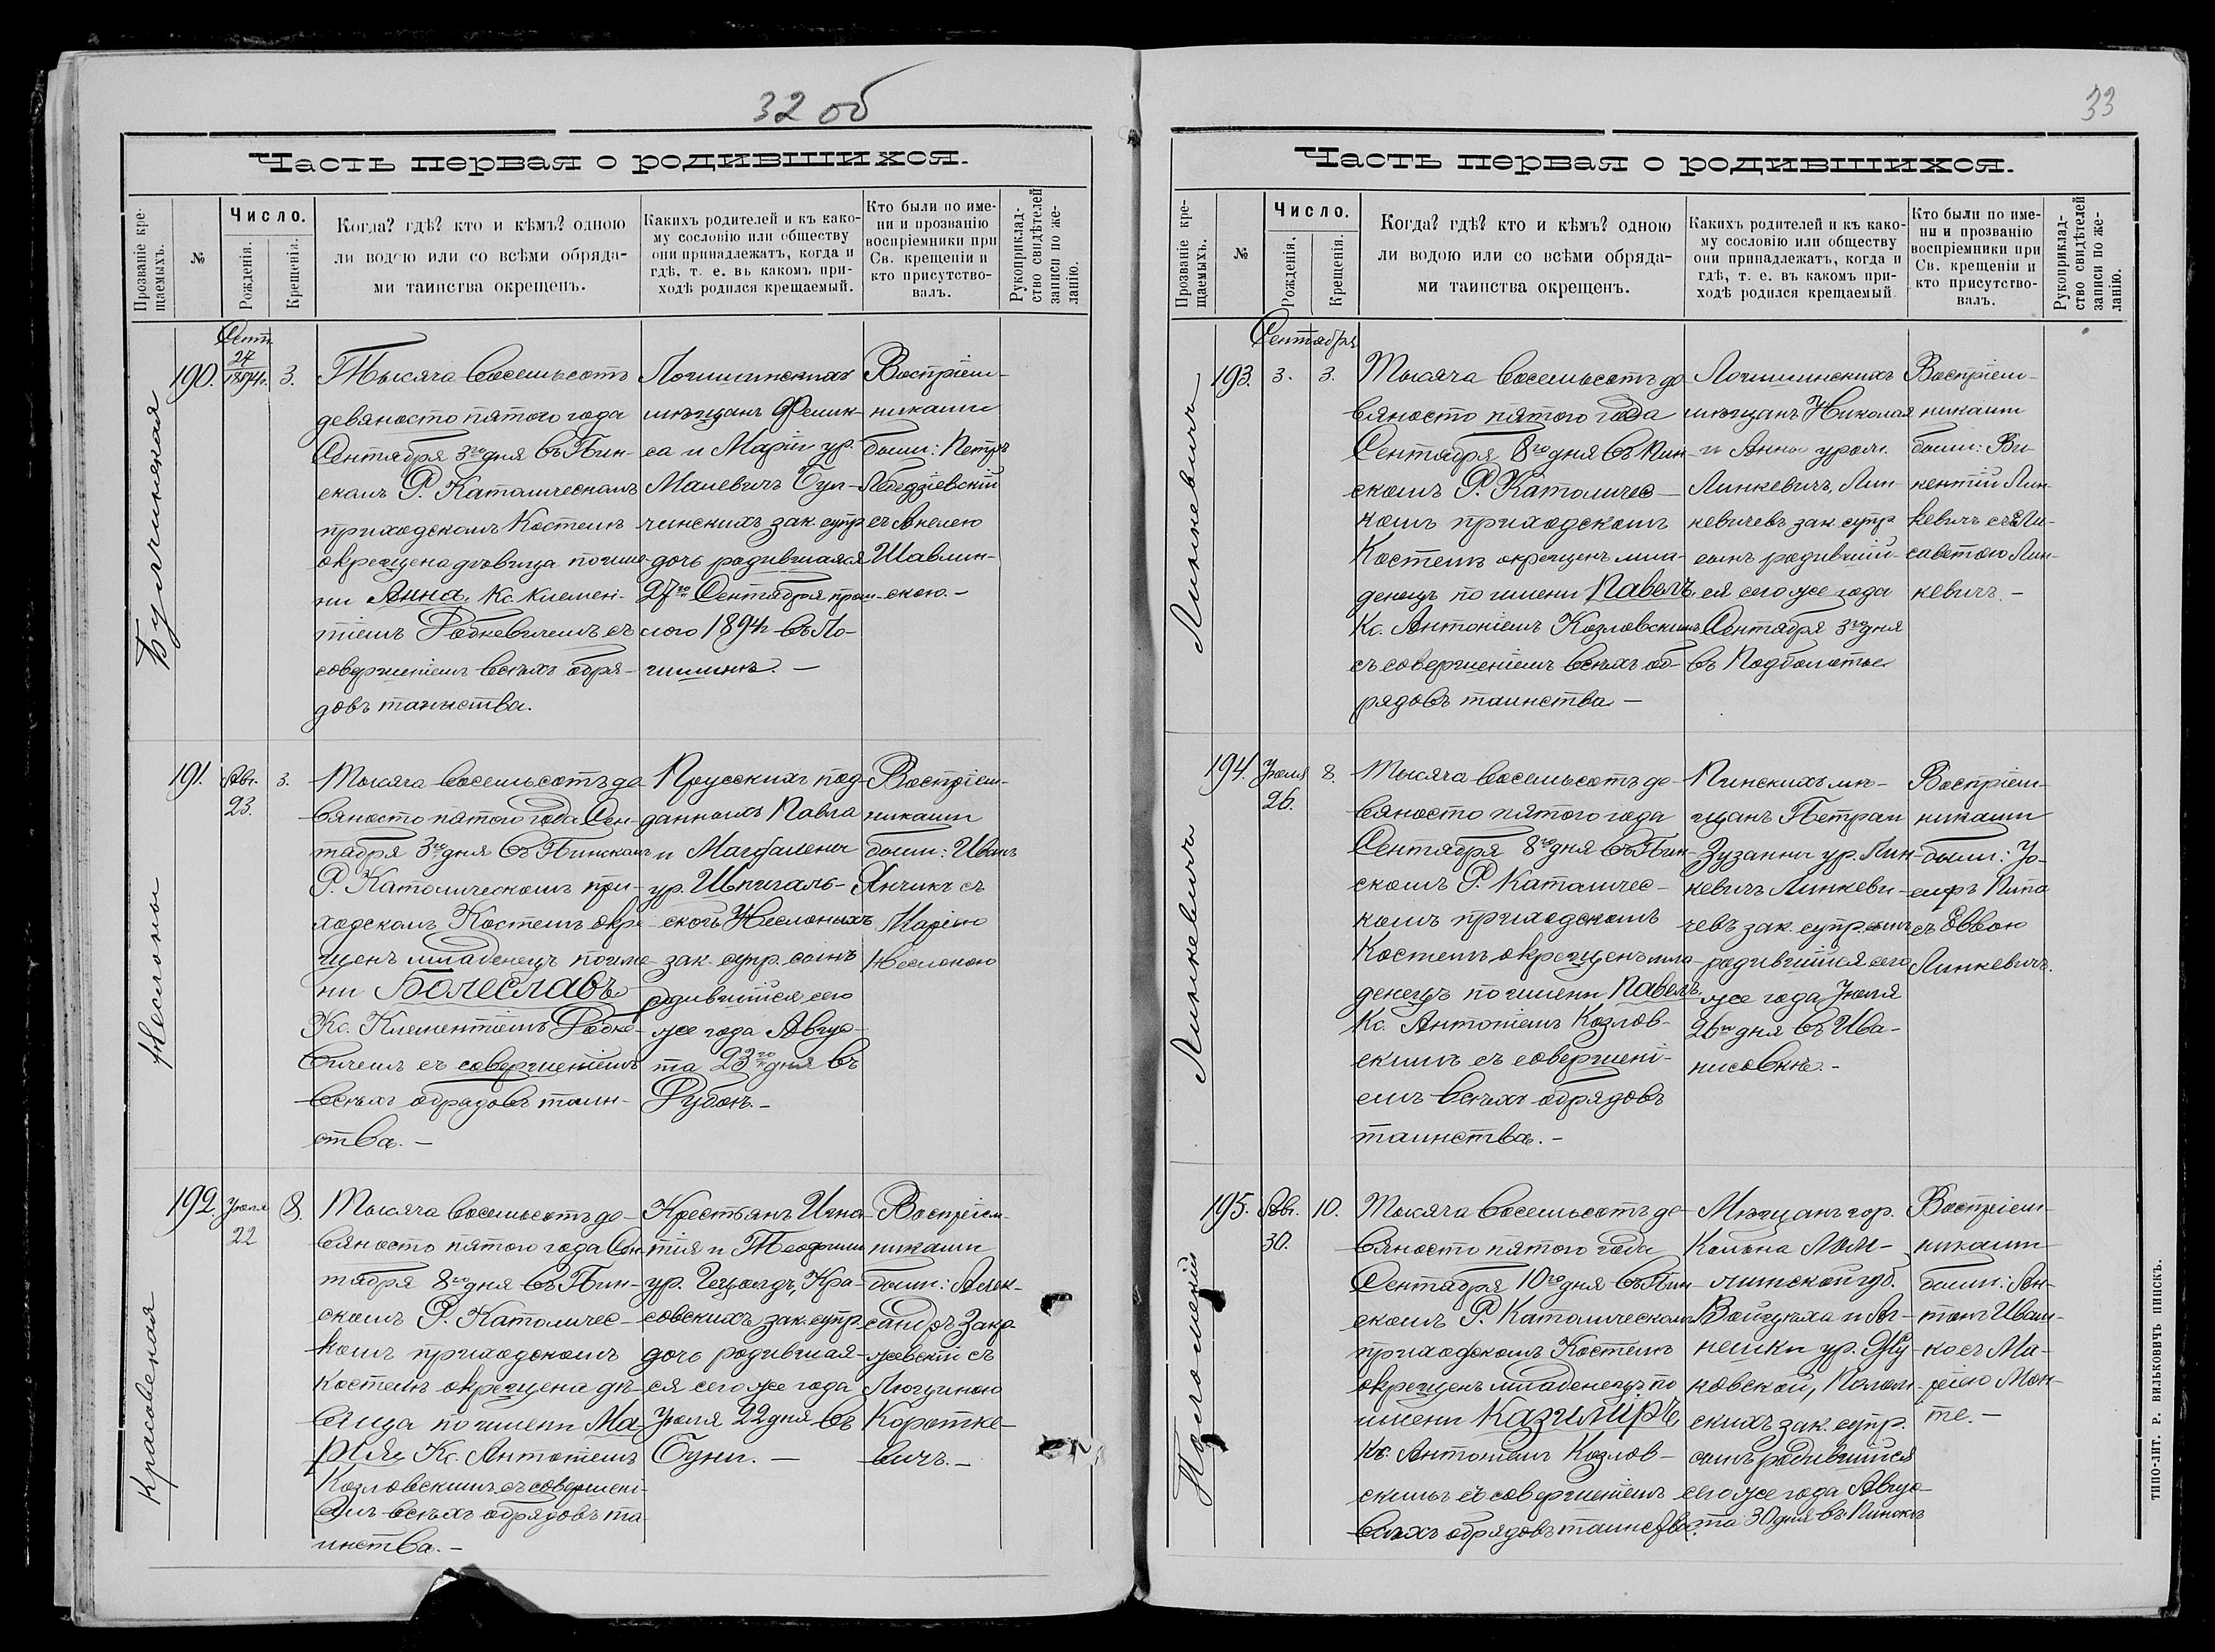 32 об
Часть первая о родившихся.
Прозваніе крещаемыхъ.
№
Число.
Рожденія.
Крещенія.
Когда? гдѣ? кто и кѣмъ? одною
ли водою или со всѣми обряда-
ми таинства окрещенъ.
Какихъ родителей и къ како-
му сословію или обществу
они принадлежатъ, когда и
гдѣ, т. е. въ какомъ при-
ходѣ родился крещаемый.
Кто были по име-
ни и прозванію
воспріемники при
Св. крещеніи и
кто присутство-
валъ.
Рукоприклад-
ство свидѣтелей
записи по же-
ланію.
Булчинская
190.
Сент.
27
1894г.
3.
Тысяча восемьсотъ
девяносто пятого года
Сентября 3го дня въ Пин-
скомъ Р. Католическомъ
приходскомъ Костелѣ
окрещена дѣвица по име-
ни Анна, Кс. Клемен-
тіемъ Родкевичемъ съ
совершеніемъ всѣхъ обря-
довъ таинства.
Логишинскихъ
мѣщанъ Фелик-
са и Маріи ур.
Малевичъ Бул-
чинскихъ зак. супр.
дочь родившаяся
27го Сентября прош-
лого 1894г. въ Ло-
гишинѣ. —
Воспріем-
никами
были: Петръ
Лебедзіевскій
съ Анелею
Шавлин-
скою. —
Неслоны
191.
Авг.
23.
3.
Тысяча восемьсотъ де-
вяносто пятого года Сен-
тября 3го дня въ Пинскомъ
Р. Католическомъ при-
ходскомъ Костелѣ окре-
щенъ младенецъ по име-
ни Болеславъ
Кс. Клементіемъ Родке-
вичемъ съ совершеніемъ
всѣхъ обрядовъ таин-
ства. —
Прусскихъ под-
данныхъ Павла
и Магдалены
ур. Шпигаль-
ской Неслоныхъ
зак. супр. сынъ
родившійся сего
же года Авгус-
та 23го дня въ
Рубонѣ. —
Воспріем-
никами
были: Иванъ
Янчикъ съ
Маріею
Неслоною
Красовская
192.
Іюля
22
8.
Тысяча восемьсотъ де-
вяносто пятого года Сен-
тября 8го дня въ Пин-
скомъ Р. Католичес-
комъ приходскомъ
Костелѣ окрещена дѣ-
вица по имени Ма-
рія, Кс. Антоніемъ
Козловскимъ съ совершені-
емъ всѣхъ обрядовъ та-
инства. —
Крестьянъ Игна-
тія и Теофили
ур. Гецолдъ, Кра-
совскихъ зак. супр.
дочь родившая-
ся сего же года
Іюля 22 дня въ
Суни. —
Воспріем-
никами
были: Алек-
сандръ Закр-
жевскій съ
Люциною
Коротке-
вичъ. —
33
Часть первая о родившихся.
Прозваніе крещаемыхъ.
№
Число.
Рожденія.
Крещенія.
Когда? гдѣ? кто и кѣмъ? одною
ли водою или со всѣми обряда-
ми таинства окрещенъ.
Какихъ родителей и къ како-
му сословію или обществу
они принадлежатъ, когда и
гдѣ, т. е. въ какомъ при-
ходѣ родился крещаемый
Кто были по име-
ни и прозванію
воспріемники при
Св. крещеніи и
кто присутство-
валъ.
Рукоприклад-
ство свидѣтелей
записи по же-
ланію.
Линкевичъ
193.
Сентября
3.
3.
Тысяча восемьсотъ де-
вяносто пятого года
Сентября 8го дня въ Пин-
скомъ Р. Католичес-
комъ приходскомъ
Костелѣ окрещенъ мла-
денецъ по имени Павелъ,
Кс. Антоніемъ Козловскимъ
съ совершеніемъ всѣхъ об-
рядовъ таинства —
Логишинскихъ
мѣщанъ Николая
и Анны урожд.
Линкевичъ, Лин-
кевичевъ зак. супр.
сынъ родившій-
ся сего же года
Сентября 3го дня
въ Подболотье
Воспріем-
никами
были: Ви-
кентій Лин-
кевичъ съ Ели-
саветою Лин-
кевичъ. —
Линкевичъ
194.
Іюля
26.
8.
Тысяча восемьсотъ де-
вяносто пятого года
Сентября 8го дня въ Пин-
скомъ Р. Католичес-
комъ приходскомъ
Костелѣ окрещенъ мла-
денецъ по имени Павелъ,
Кс. Антоніемъ Козлов-
скимъ съ совершені-
емъ всѣхъ обрядовъ
таинства. —
Пинскихъ мѣ-
щанъ Петра и
Зузанны ур. Лин-
кевичъ Линкеви-
чевъ зак. супр. сынъ
родившійся сего
же года Іюля
26го дня въ Ива-
нисовкѣ. —
Воспріем-
никами
были: Іо-
сифъ Пипа
съ Еввою
Линкевичъ.
195.
Авг.
30.
10.
Тысяча восемьсотъ де-
вяносто пятого года
Сентября 10го дня въ Пин-
скомъ Р. Католическомъ
приходскомъ Костелѣ
окрещенъ младенецъ по
имени Казиміръ
Кс. Антоніемъ Козлов-
скимъ съ совершеніемъ
всѣхъ обрядовъ таинства.
Мѣщанъ гор.
Кольна Лом-
жинской губ.
Войцѣха и Аг-
нешки ур. Жу-
ковской,
скихъ зак. супр.
сынъ родившійся
сего же года Авгус-
та 30 дня въ Пинскѣ
Воспріем-
никами
были: Ан-
тонъ Иваш-
ко съ Ма-
ріею Мон-
те. —
ТИПО-ЛИТ. Р. ВИЛЬКОВИЧЪ ПИНСКЪ.